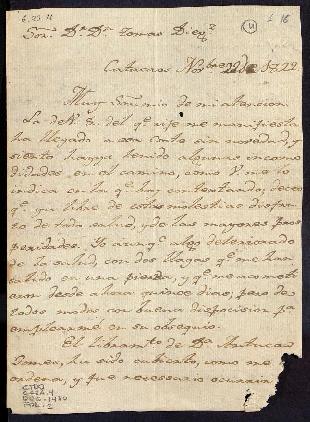 Sor. Dn. Dn. Tomas Diego
Nobre. 22 de 1822.
Muy Señor mio de mi atencion
La de V. 8. del qe. rije me manifiesta
ha llegado a esa Corte sin novedad, y
siento haya tenido algunas incomo
didades en el camino, como V. me lo
indica en la qe. hoy contextando, deceo
qe. ya libre de estas molestias disfru
te de toda salud, y de las mayores pros
peridades. Yo aunqe. algo deteriorado
de la salud, con dos llagas qe. me han
salido en una pierna, y qe. me acometi
eron desde ahora quince dias; pero de
todos modos con buena disposicion pa
emplearme en su obsequio.
El libramto. de Dn. Antonio
Gomez, ha sido cubierto, como me
ordena, y fue necesario ocurrir